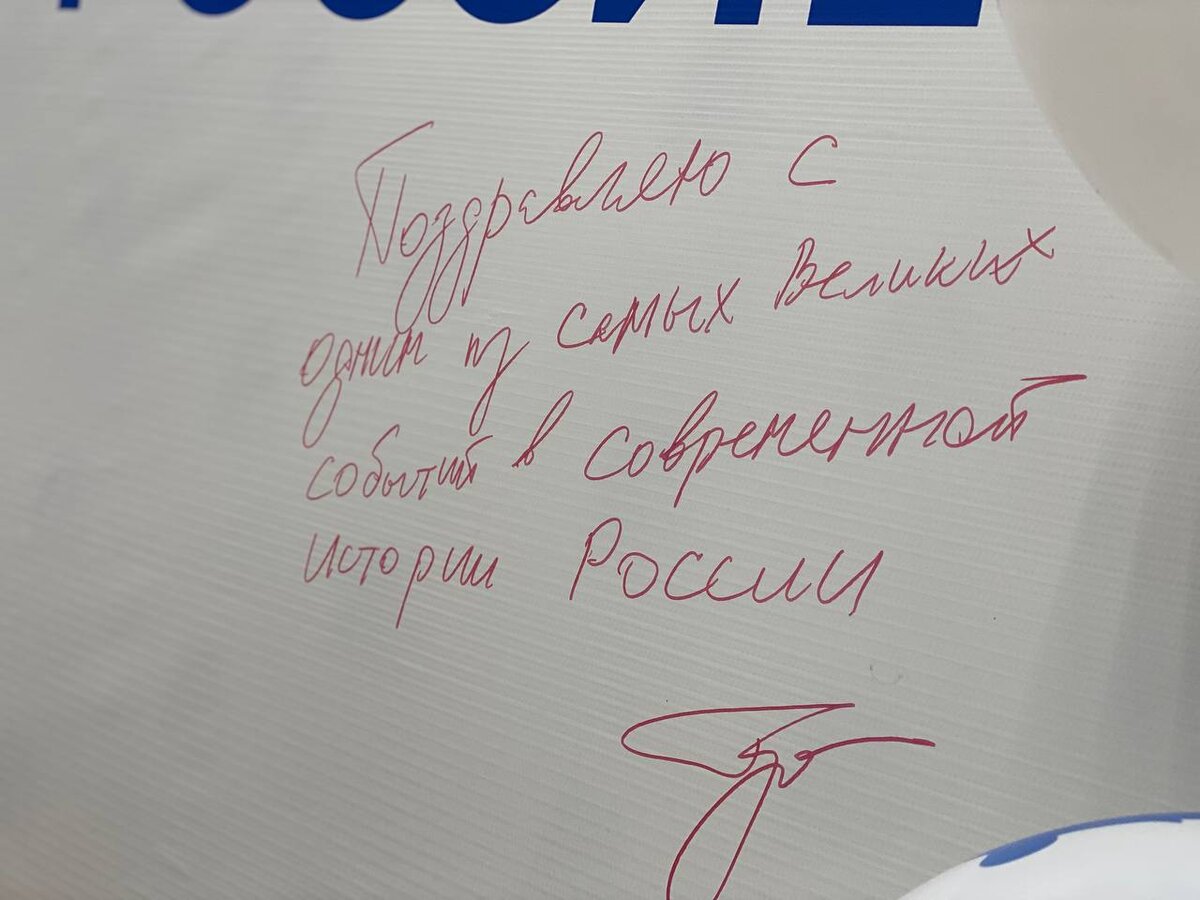 Поздравляю с
одним из самых Великих
событий в современной
истории России